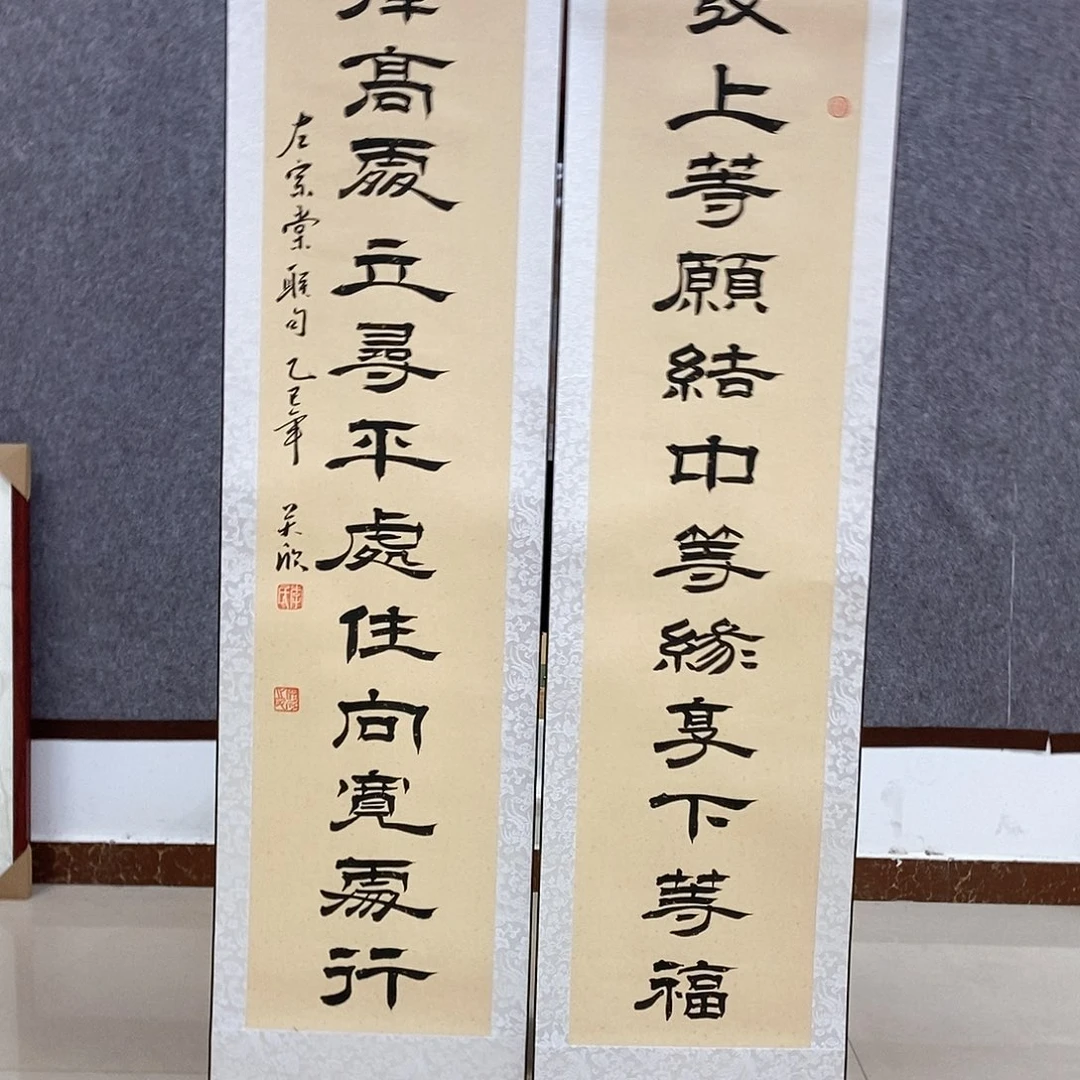 發上等願結中等緣享下等福
擇高處立尋平處住向寬處行
左宗棠联句 乙巳年 吴欣